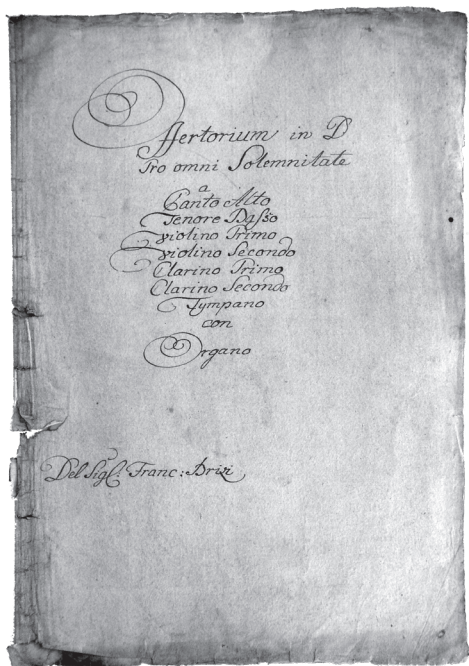 Offertorium in D
Pro omni Solemnitate
a
Canto Alto
Tenore Basso
Violino Primo
Violino Secondo
Clarino Primo
Clarino Secondo
Tympano
con
Organo
Del Sigl: Franc: Brixi